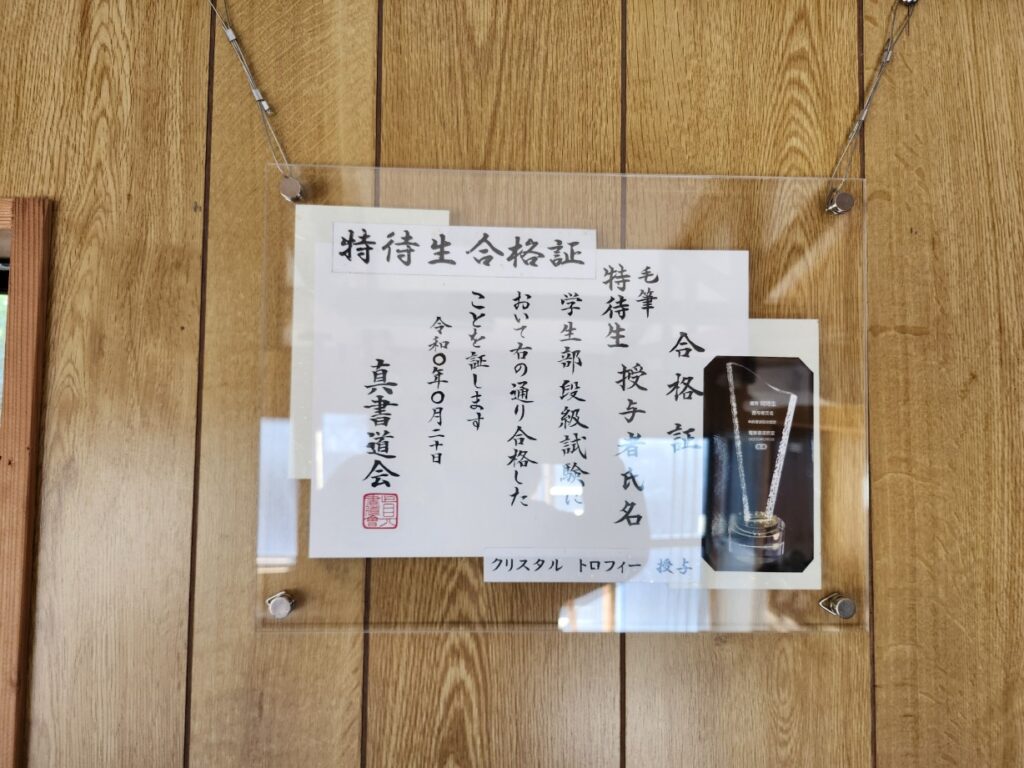 特待生合格証
合格証
毛筆
特待生 授与者氏名
学生部段級試験に
おいて右の通り合格した
ことを証します
令和〇年〇月二十日
真書道会
クリスタル トロフィー 授与